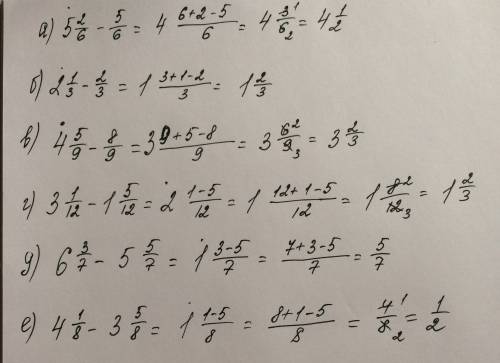 а) 5 2/6 − 5/6 = 4 (6+2−5)/6 = 4 3¹/6₂ = 4 1/2
б) 2 1/3 − 2/3 = 1 (3+1−2)/3 = 1 2/3
в) 4 5/9 − 8/9 = 3 (9+5−8)/9 = 3 6²/9₃ = 3 2/3
г) 3 1/12 − 1 5/12 = 2 (1−5)/12 = 1 (12+1−5)/12 = 1 8²/12₃ = 1 2/3
д) 6 3/7 − 5 5/7 = 1 (3−5)/7 = (7+3−5)/7 = 5/7
е) 4 1/8 − 3 5/8 = 1 (1−5)/8 = (8+1−5)/8 = 4¹/8₂ = 1/2